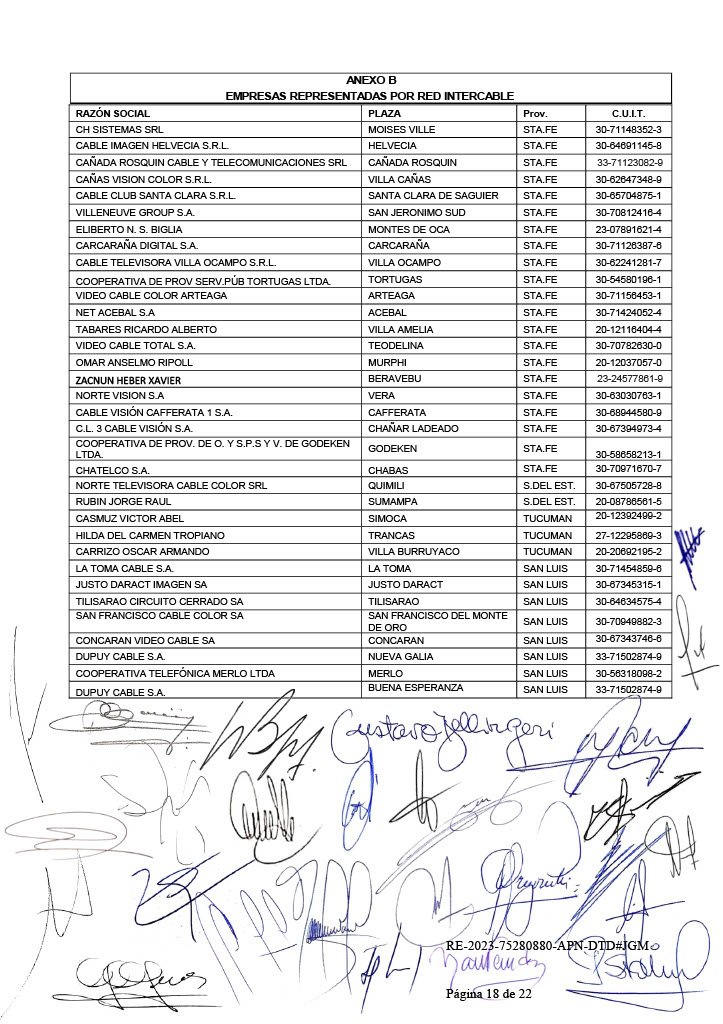 ANEXO B
EMPRESAS REPRESENTADAS POR RED INTERCABLE
RAZÓN SOCIAL PLAZA Prov. C.U.I.T.
CH SISTEMAS SRL MOISES VILLE STA.FE 30-71148352-3
CABLE IMAGEN HELVECIA S.R.L. HELVECIA STA.FE 30-64691145-8
CAÑADA ROSQUIN CABLE Y TELECOMUNICACIONES SRL CAÑADA ROSQUIN STA.FE 33-71123082-9
CAÑAS VISION COLOR S.R.L. VILLA CAÑAS STA.FE 30-62647348-9
CABLE CLUB SANTA CLARA S.R.L. SANTA CLARA DE SAGUIER STA.FE 30-65704875-1
VILLENEUVE GROUP S.A. SAN JERONIMO SUD STA.FE 30-70812416-4
ELIBERTO N. S. BIGLIA MONTES DE OCA STA.FE 23-07891621-4
CARCARAÑA DIGITAL S.A. CARCARAÑA STA.FE 30-71126387-6
CABLE TELEVISORA VILLA OCAMPO S.R.L. VILLA OCAMPO STA.FE 30-62241281-7
COOPERATIVA DE PROV SERV.PÚB TORTUGAS LTDA. TORTUGAS STA.FE 30-54580196-1
VIDEO CABLE COLOR ARTEAGA ARTEAGA STA.FE 30-71156453-1
NET ACEBAL S.A ACEBAL STA.FE 30-71424052-4
TABARES RICARDO ALBERTO VILLA AMELIA STA.FE 20-12116404-4
VIDEO CABLE TOTAL S.A. TEODELINA STA.FE 30-70782630-0
OMAR ANSELMO RIPOLL MURPHI STA.FE 20-12037057-0
ZACNUN HEBER XAVIER BERAVEBU STA.FE 23-24577861-9
NORTE VISION S.A VERA STA.FE 30-63030763-1
CABLE VISIÓN CAFFERATA 1 S.A. CAFFERATA STA.FE 30-68944580-9
C.L. 3 CABLE VISIÓN S.A. CHAÑAR LADEADO STA.FE 30-67394973-4
COOPERATIVA DE PROV. DE O. Y S.P.S Y V. DE GODEKEN
LTDA. GODEKEN STA.FE 30-58658213-1
CHATELCO S.A. CHABAS STA.FE 30-70971670-7
NORTE TELEVISORA CABLE COLOR SRL QUIMILI S.DEL EST. 30-67505728-8
RUBIN JORGE RAUL SUMAMPA S.DEL EST. 20-08786561-5
CASMUZ VICTOR ABEL SIMOCA TUCUMAN 20-12392499-2
HILDA DEL CARMEN TROPIANO TRANCAS TUCUMAN 27-12295869-3
CARRIZO OSCAR ARMANDO VILLA BURRUYACO TUCUMAN 20-20692195-2
LA TOMA CABLE S.A. LA TOMA SAN LUIS 30-71454859-6
JUSTO DARACT IMAGEN SA JUSTO DARACT SAN LUIS 30-67345315-1
TILISARAO CIRCUITO CERRADO SA TILISARAO SAN LUIS 30-64634575-4
SAN FRANCISCO CABLE COLOR SA SAN FRANCISCO DEL MONTE
DE ORO SAN LUIS 30-70949882-3
CONCARAN VIDEO CABLE SA CONCARAN SAN LUIS 30-67343746-6
DUPUY CABLE S.A. NUEVA GALIA SAN LUIS 33-71502874-9
COOPERATIVA TELEFÓNICA MERLO LTDA MERLO SAN LUIS 30-56318098-2
DUPUY CABLE S.A. BUENA ESPERANZA SAN LUIS 33-71502874-9
Gustavo
RE-2023-75280880-APN-DTD#JGM
Página 18 de 22